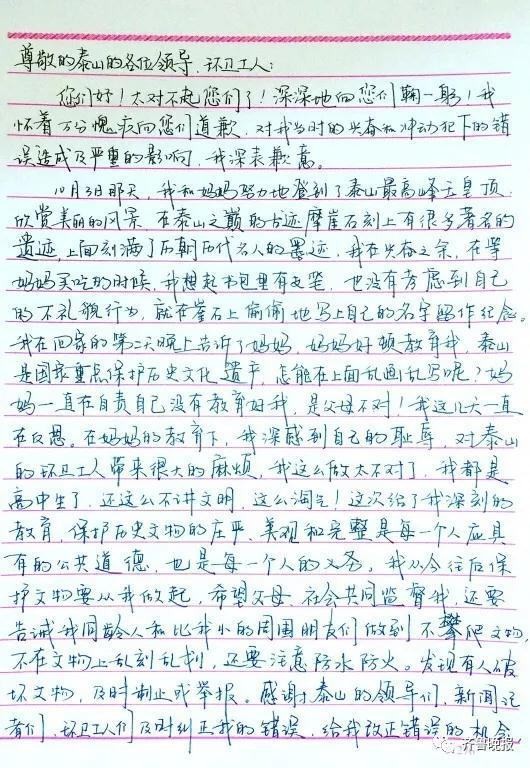 尊敬的泰山的各位领导、环卫工人:
您们好!太对不起您们了!深深地向您们鞠一躬!我
怀着万分愧疚向您们道歉,对我当时的兴奋和冲动犯下的错
误造成及严重的影响,我深表歉意。
10月3日那天,我和妈妈努力地登到了泰山最高峰玉皇顶
欣赏美丽的风景,在泰山之巅的古迹摩崖石刻上有很多著名的
遗迹,上面刻满了历朝历代名人的墨迹,我在兴奋之余,在等
妈妈买吃的时候,我想起书包里有支笔,也没有考虑到自己
的不礼貌行为,就在崖石上偷偷地写上自己的名字留作纪念。
我在回家的第二天晚上告诉了妈妈,妈妈好顿教育我,泰山
是国家重点保护历史文化遗产,怎能在上面乱画乱写呢?妈
妈一直在自责自己没有教育好我,是父母不对!我这几天一直
在反思。在妈妈的教育下,我深感到自己的耻辱,对泰山
的环卫工人带来很大的麻烦,我这么做太不对了,我都是
高中生了,还这么不讲文明,这么淘气!这次给了我深刻的
教育,保护历史文物的庄严、美观和完整是每一个人应具
有的公共道德,也是每一个人的义务。我从今往后保
护文物要从我做起,希望父母、社会共同监督我,还要
告诫我同龄人和比我小的周围朋友们做到不攀爬文物,
不在文物上乱刻乱划,还要注意防水防火。发现有人破
坏文物,及时制止或举报。感谢泰山的领导们,新闻记
者们,环卫工人们及时纠正我的错误,给我改正错误的机会
齐鲁晚报